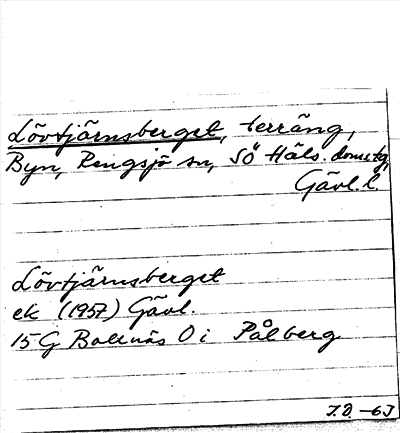 Lövtjärnsberget, terräng,
Byn, Rengsjö sn, SÖ Häls. domstg,
Gävl. l.
Lövtjärnsberget
ek (1957) Gävl.
15 G Bollnäs O i Pålberg
J.D. -63